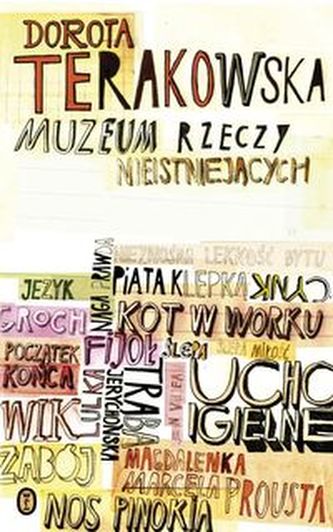 DOROTA
TERAKOWSKA
MUZEUM RZECZY
NIEISTNIEJĄCYCH
NIEZNOŚNA LEKKOŚĆ BYTU
PIĄTA KLEPKA
CYNIK
JĘZYK
NAGA PRAWDA
GROCH
KOT W WORKU
POCZĄTEK
KOŃCA
FIJOŁ
ŚLEPA
ŚLEPA MIŁOŚĆ
LULKA
JERYCHOŃSKA
TRĄBA
UCHO
IGIELNE
WIK
ZABÓJ
MAGDALENKA
MARCELA PROUSTA
NOS PINOKIA